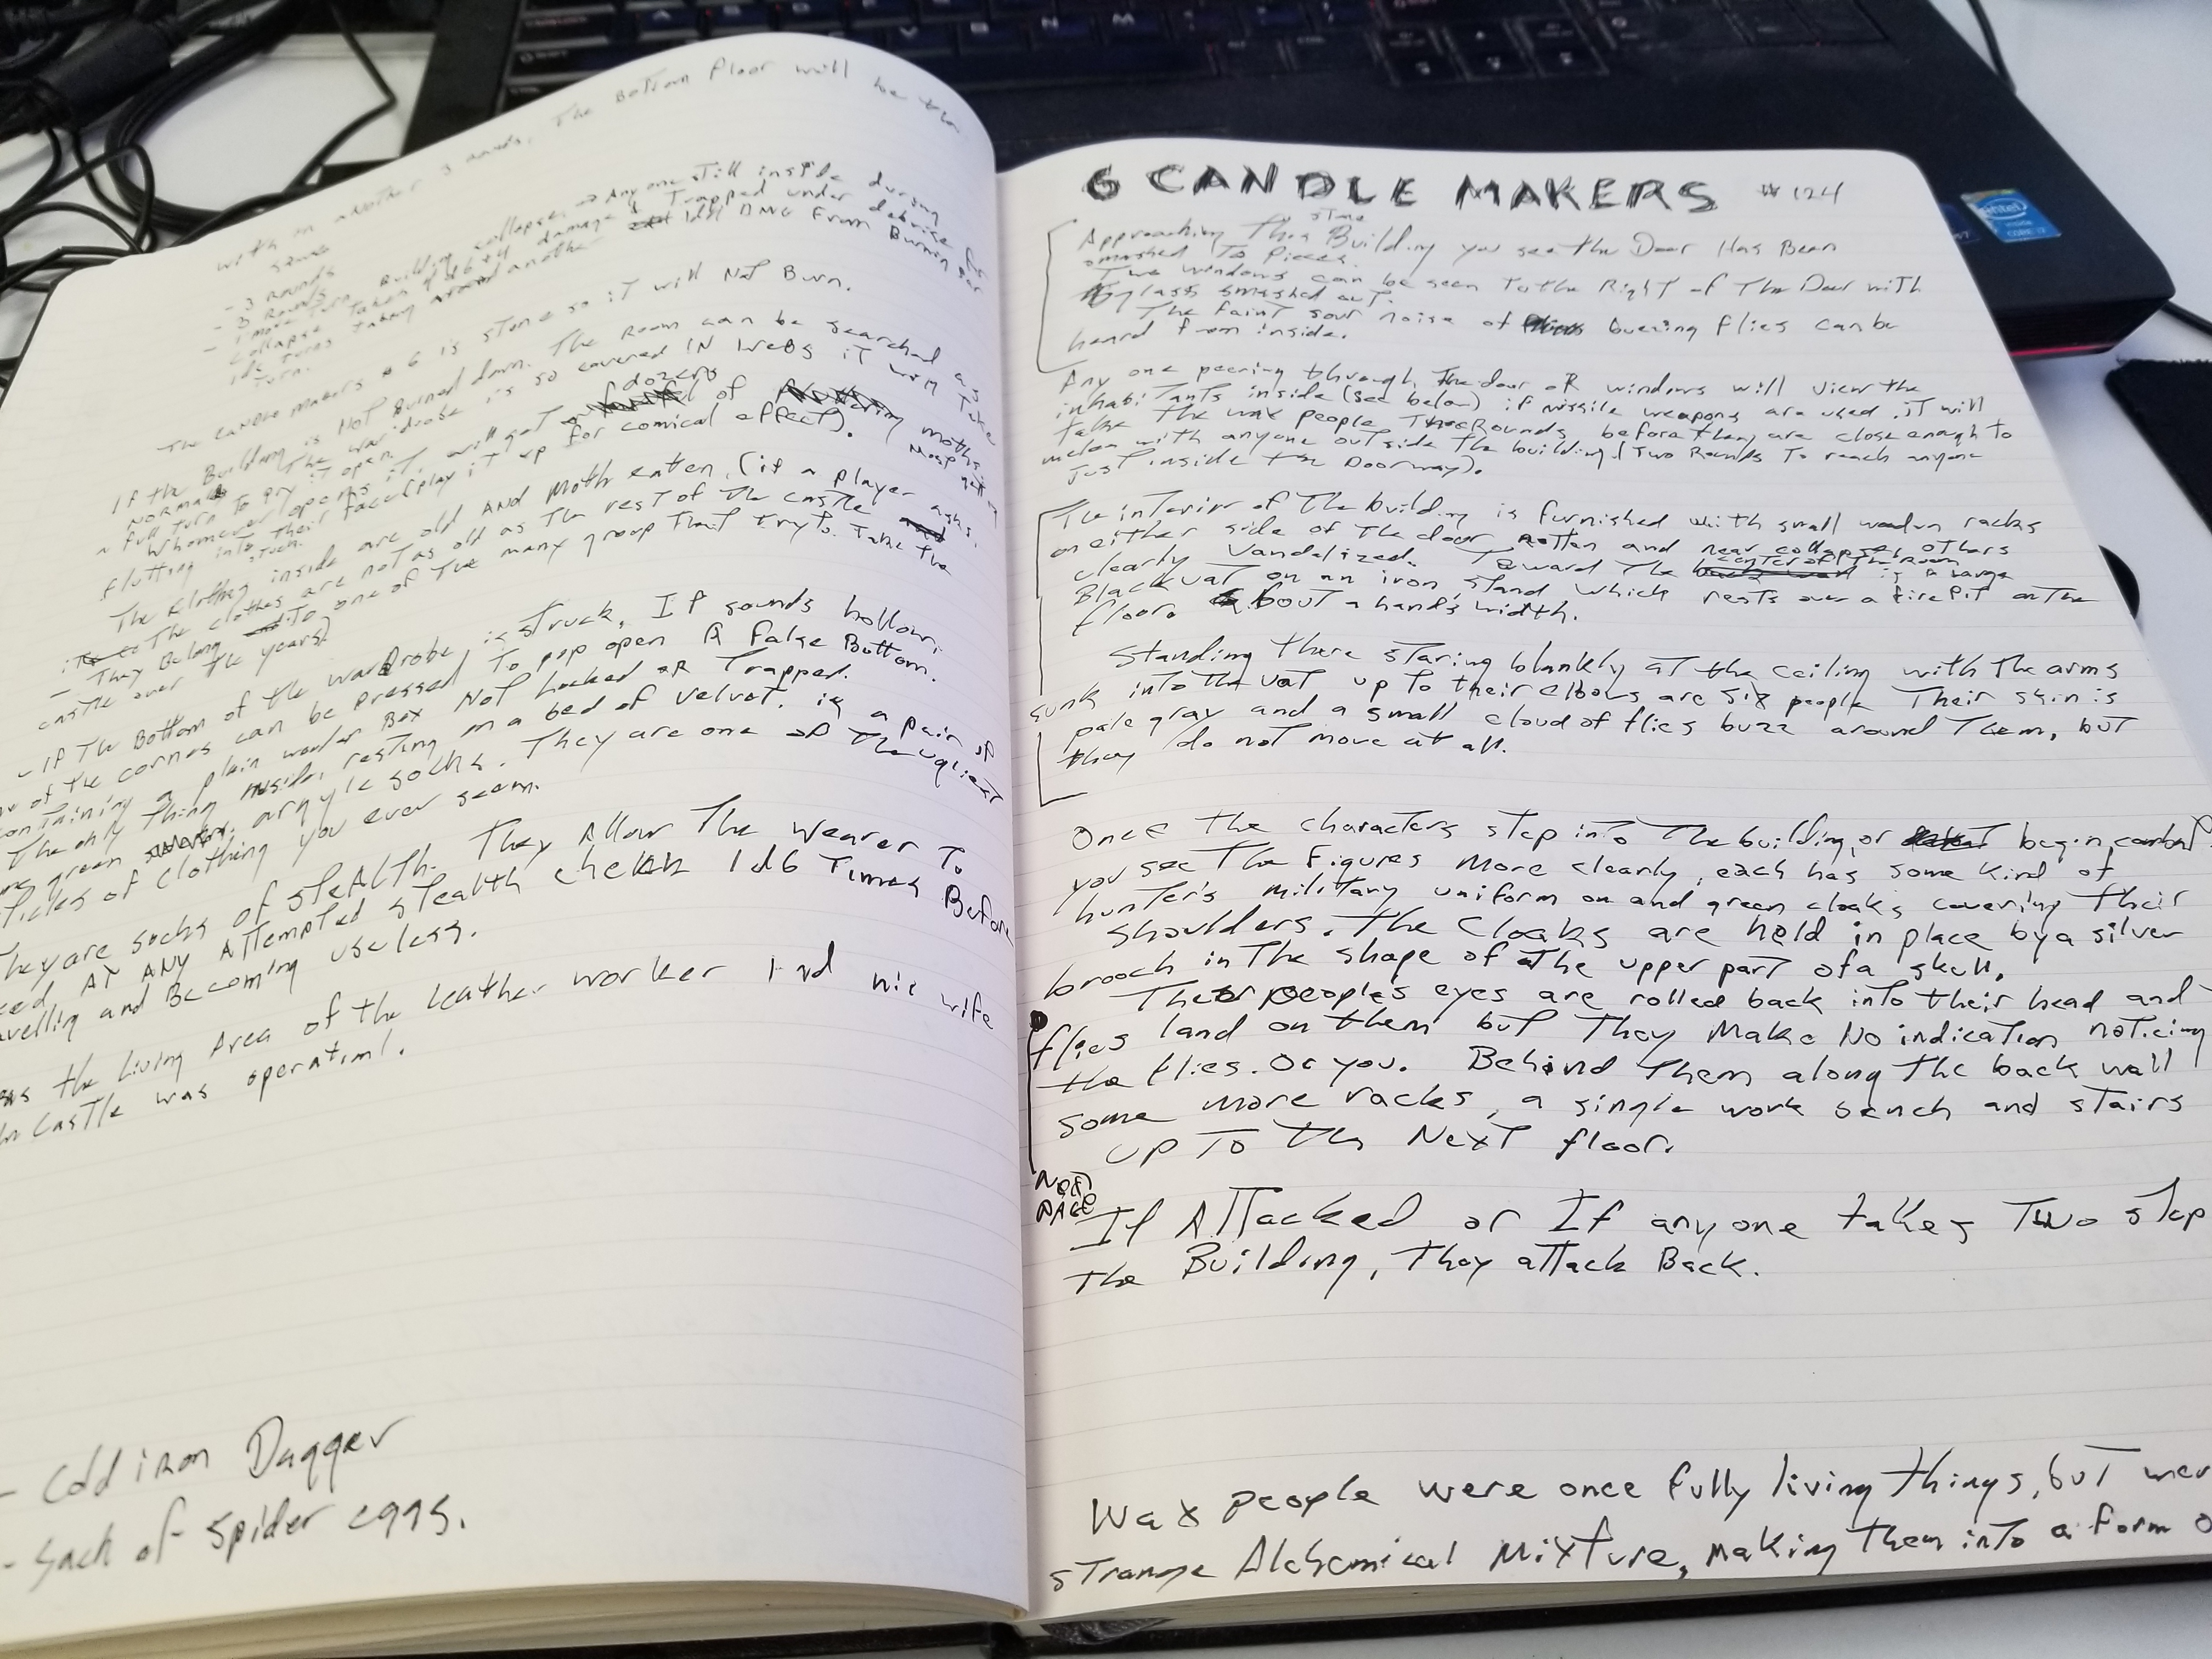 with in another 3 rounds. The Bottom floor will be the
same
- 3 Rounds
- 3 Rounds
- 1 more Turn Building collapses → Anyone still inside during
collapse Taken damage & Trapped under debrise for
1d6 Turns taking another 1d4 DMG From Burning per
Turn.
The CANDLE MAKERS # 6 is stone so iT will NoT Burn.
If the Building is NoT Burned down. The Room can be searched as
NORMAL The wardrobe is so covered IN WeBs iT will Take
a full Turn To pry iT open.
Whomever opens iT, will get dozens of moths
flutting into Their face (play iT up for comical effect).
The Clothing inside are old AND Moth eaten (if a player asks,
The clothes are not as old as The rest of The castle
- They Belong To one of The many group ThaT try To Take the
castle over The years)
- if The Bottom of the wardrobe is sTruck, IT sounds hollow,
of the corners can be pressed To pop open A false Bottom.
containing a plain wooden Box NoT Locked oR Trapped.
The only Thing inside, resting on a bed of velvet, is a pair of
green argyle socks. They are one of The ugliest
articles of clothing you ever seen.
They are socks of stealth. They Allow The Wearer To
AT ANY ATTempted stealth check 1d6 Times Before
and Becoming useless.
the Living Area of the Leather worker And his wife
Castle was operational.
- Cold iron Dagger
- Sack of spider eggs.
6 CANDLE MAKERS #124
stone
Approaching This Building you see the Door Has Been
smashed To pieces.
Two windows can be seen To the Right of The Door with
glass smashed ouT.
The fainT sour noise of buzzing flies can be
heard from inside.
Any one peering through The door oR windows will view the
inhabiTanTs inside (see below) if missile weapons are used, iT will
take The wax people Three Rounds before They are close enough to
melee with anyone outside The building (Two Rounds To reach anyone
JusT inside the Doorway).
The interior of The building is furnished with small wooden racks
on either side of The door rotten and near collapse, others
clearly Vandelized. Toward The center of The room is a large
Black vaT on an iron stand which rests over a fire PiT on The
floor. About a hands width.
Standing There sTaring blankly aT the ceiling with The arms
sunk into The vaT up to their elbows are six people Their skin is
pale gray and a small cloud of flies buzz around Them, buT
They do not move at all.
Once The characters step into The building, or begin combat
you see The figures More clearly, each has some kind of
hunter's military uniform on and green cloaks covering their
shoulders. The Cloaks are held in place by a silver
brooch in The shape of The upper part of a skull.
The people's eyes are rolled back into their head and
flies land on them buT They Make No indication noticing
the flies. Or you. Behind Them along The back wall
some more racks, a single work bench and stairs
up To The NexT floor.
NexT
PAGE
If ATTacked or If anyone takes Two step
The Building, They aTTack Back.
Wax people were once fully living things, buT wer
sTrange Alchemical MixTure, making Them inTo a form o
intel